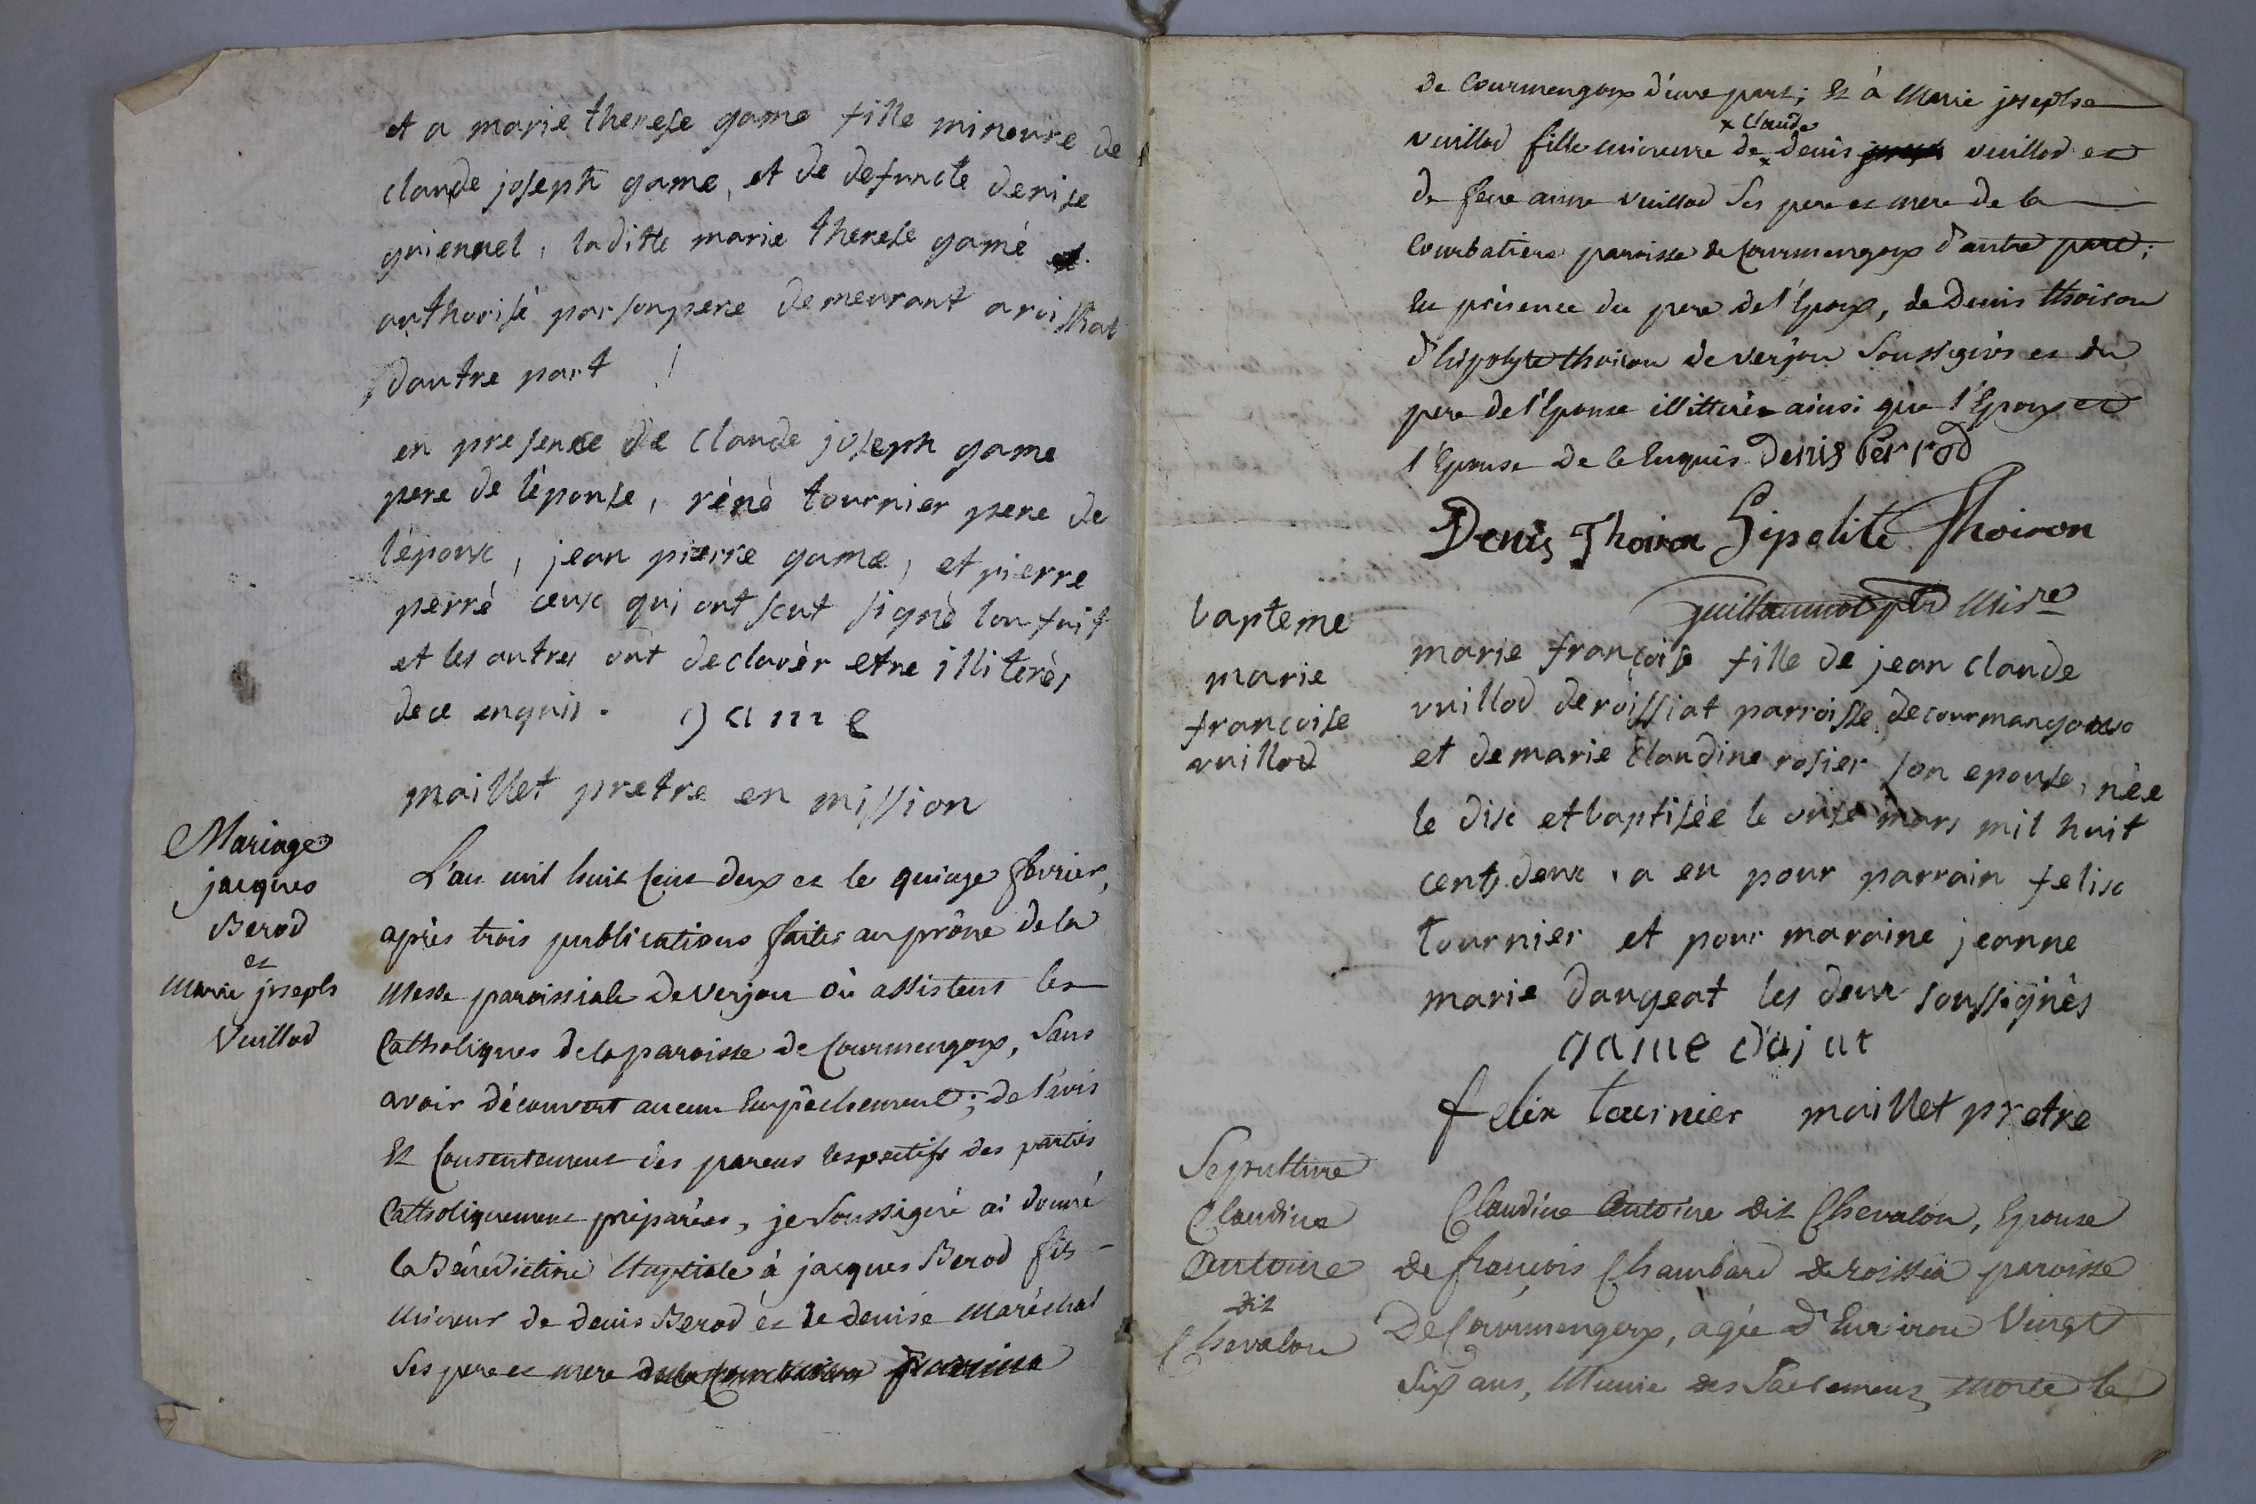 et a marie therese game fille mineure de
claude joseph game, et de defuncte denise
guiennel, laditte marie therese gamé
authorisé par son pere demeurant a roissiat
dautre part
en presence de claude joseph game
pere de l'épouse, réné tournier pere de
l'époux, jean pierre game, et pierre
perré ceux qui ont scut signé lon fait
et les autres ont declarèr etre illiterès
de ce enquis. game
maillet pretre en mission
Mariage
jacques
Berod
et
Marie josephe
Vuillod
L'an mil huit cent deux et le quinze février,
après trois publications faites au prône de la
Messe paroissiale de verjon où assistent les
Catholiques de la paroisse de Courmengoux, sans
avoir découvert aucun Empêchement; de l'avis
Et Consentement des parens respectifs des parties
Catholiquement préparées, je soussigné ai donné
la Bénédiction Nuptiale à jacques Berod fils
Mineur de denis Berod et de denise Maréchal
ses pere et mere
de Courmengoux d'une part; Et à Marie josephe
x claude
vuillod fille mineure de x denis vuillod et
de feue anne vuillod ses pere et mere de la
Courbatiere paroisse de Courmengoux d'autre part;
En présence du pere de l'Epoux, de Denis thoiron
d'hipolyte thoiron de verjon soussignés et du
pere de l'Epouse illitterés ainsi que l'Epoux et
l'Epouse de ce Enquis Denis Berrod
Denis Thoiron Hipolite Thoiron
Guillaumot ptre Misre
bapteme
marie
françoise
vuillod
marie françoise fille de jean claude
vuillod de roissiat parroisse de courmangoux
et de marie claudine rosier son epouse, née
le dix et baptisée le onse mars mil huit
cents deux. a eu pour parrain felix
tournier et pour maraine jeanne
marie dangeat les deux soussignès
game dajat
felix tournier maillet pretre
Sepulture
Claudine
Antoine
dit
Chevalon
Claudine Antoine dit Chevalon, Epouse
de françois Chambard de roissia paroisse
De Courmengoux, agée d'Environ Vingt
Six ans, Munie des Sacremens, Morte le